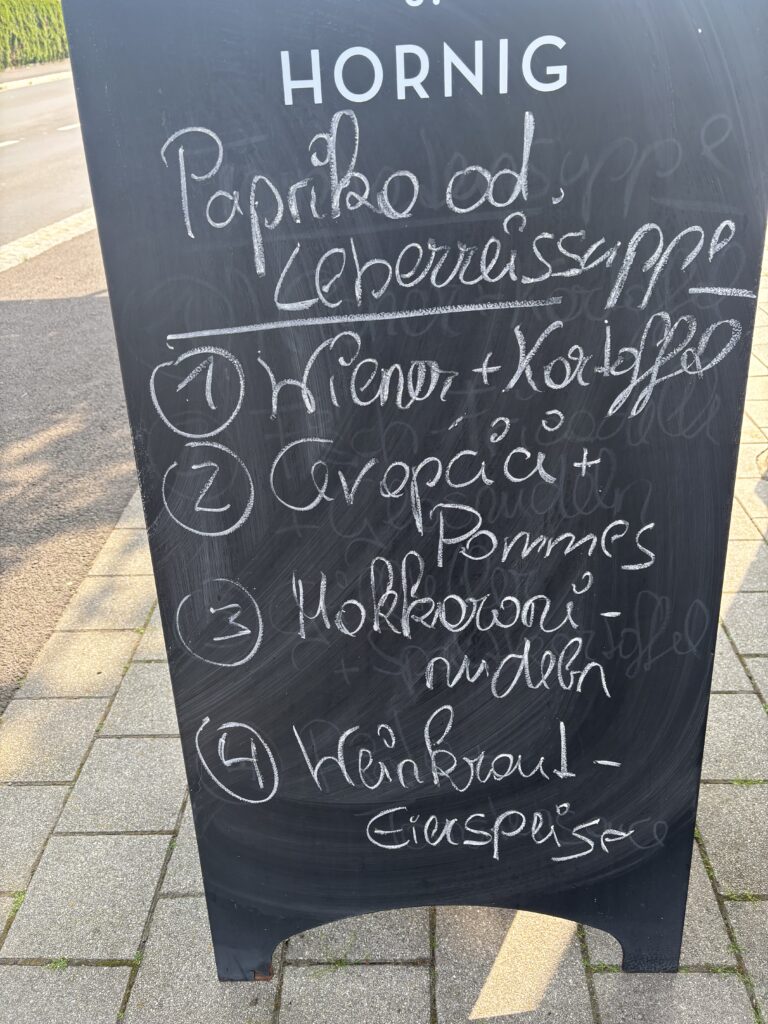 HORNIG
Paprika od.
Leberreissuppe
1 Wiener + Kartoffel
2 Cevapcici +
Pommes
3 Makkaroni-
nudeln
4 Weinkraut-
Eierspeise